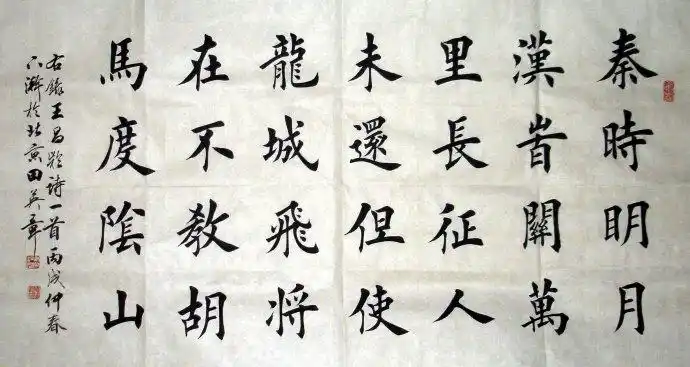 秦時明月
漢旹關萬
里長征人
未還但使
龍城飛将
在不教胡
馬度陰山
右錄王昌齡詩一首丙戌仲春
於北京田英章